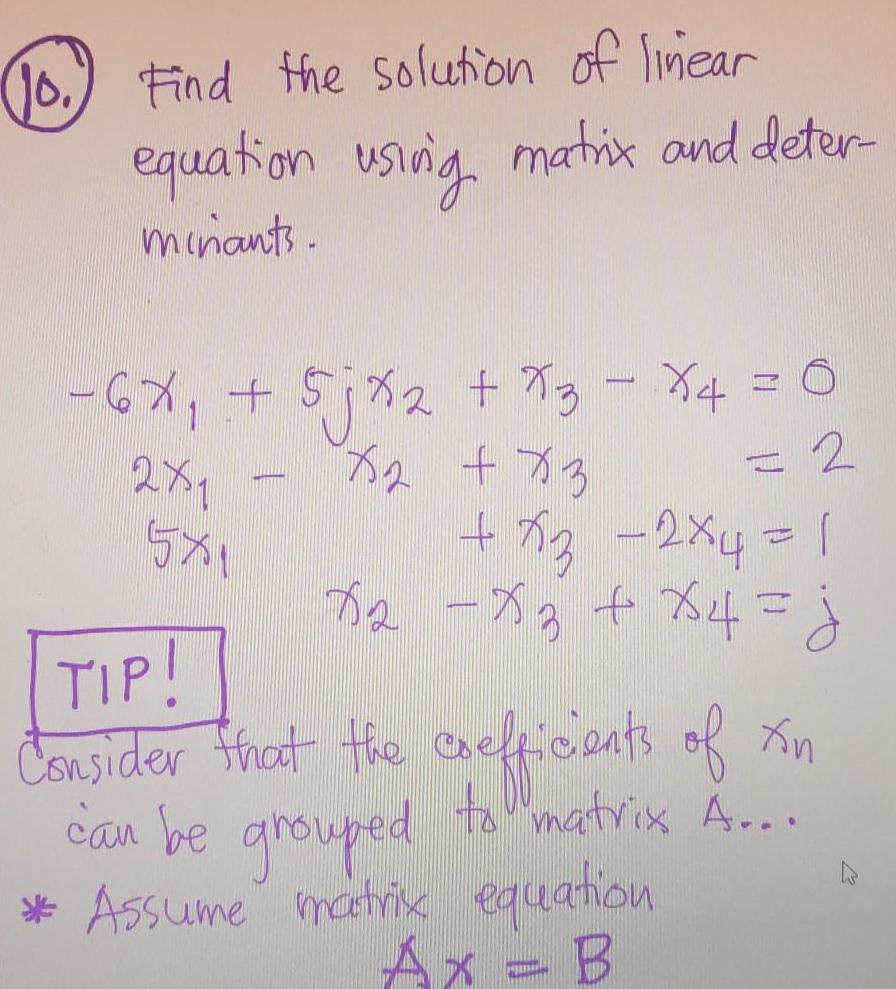 10. Find the solution of linear
equation using matrix and deter-
minants.
-6x₁ + 5jx₂ + x₃ - x₄ = 0
2x₁ - x₂ + x₃ = 2
5x₁ + x₃ - 2x₄ = 1
x₂ - x₃ + x₄ = j
TIP!
Consider that the coefficients of xn
can be grouped to matrix A...
* Assume matrix equation
Ax = B